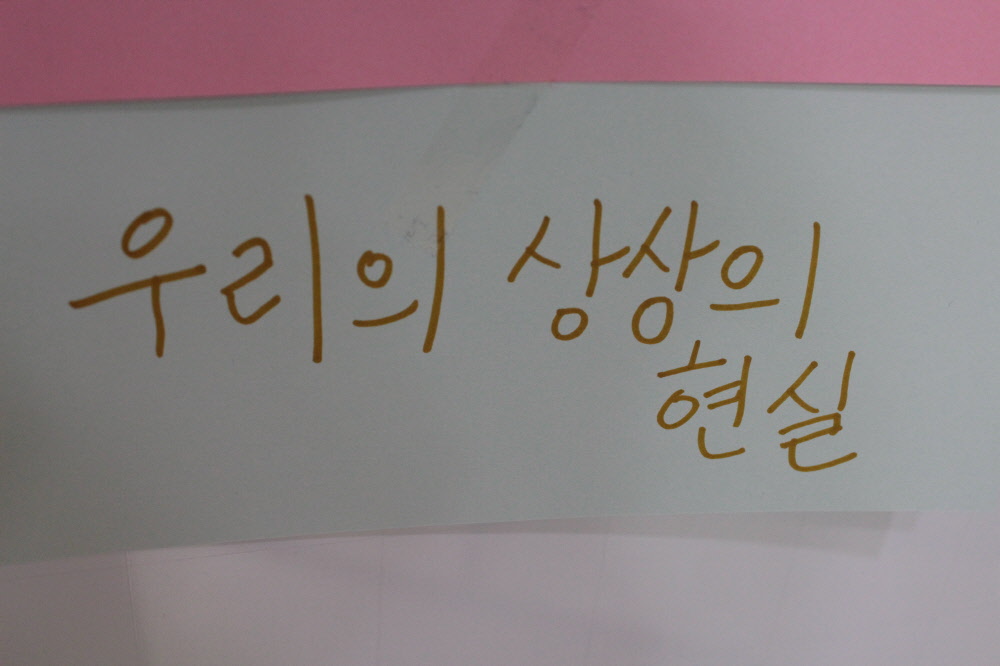 우리의 상상의
현실